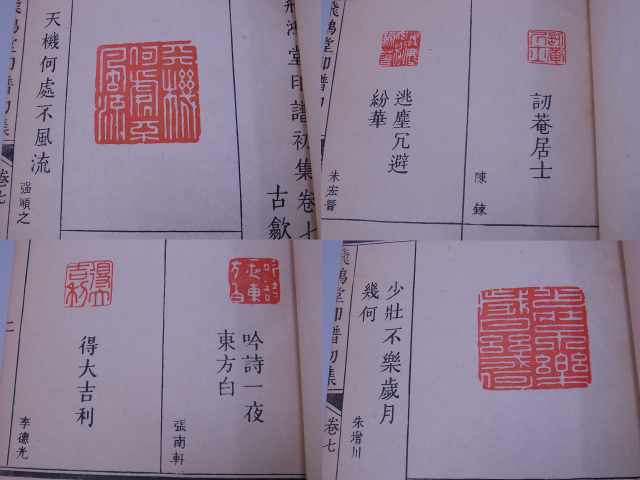 飛鴻堂印譜初集卷七
古歙
天機何處不風流
强順之
飛鴻堂印譜初集
卷七
訒菴居士
陳鍊
逃塵冗避
紛華
朱宏晉
飛鴻堂印譜初集
吟詩一夜
東方白
張南軒
得大吉利
李德光
二
少壯不樂歲月
幾何
朱增川
飛鴻堂印譜初集
卷七